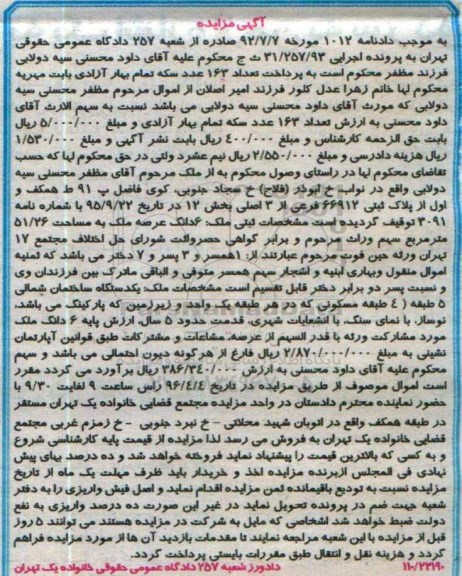 آگهی مزایده
به موجب دادنامه ۱۰۱۲ مورخه ۹۲/۷/۷ صادره از شعبه ۲۵۷ دادگاه عمومی حقوقی
تهران به پرونده اجرایی ۳۱/۲۵۷/۹۳ ث ج محکوم علیه آقای داود محسنی سیه دولابی
فرزند مظفر محکوم است به پرداخت تعداد ۱۶۳ عدد سکه تمام بهار آزادی بابت مهریه
محکوم لها خانم زهرا عدل کلور فرزند امیر اصلان از اموال مرحوم مظفر محسنی سیه
دولابی که مورث آقای داود محسنی سیه دولابی می باشد نسبت به سهم الارث آقای
داود محسنی به ارزش تعداد ۱۶۳ عدد سکه تمام بهار آزادی و مبلغ ۵/۰۰۰/۰۰۰ ریال
بابت حق الزحمه کارشناس و مبلغ ۴۰۰/۰۰۰ ریال بابت نشر آگهی و مبلغ ۱/۵۳۰/۰۰۰
ریال هزینه دادرسی و مبلغ ۲/۵۵۰/۰۰۰ ریال نیم عشرد ولتی در حق محکوم لها که حسب
تقاضای محکوم لها در راستای وصول محکوم به از ملک مرحوم آقای مظفر محسنی سیه
دولابی واقع در نواب خ ابوذر (فلاح) خ سجاد جنوبی، کوی فاضل پ ۹۱ ط همکف و
اول از پلاک ثبتی ۶۶۹۱۲ فرعی از ۳ اصلی بخش ۱۲ در تاریخ ۹۵/۹/۲۲ با شماره نامه
۳۰۹۱ توقیف گردیده است مشخصات ثبتی ملک: ۶دانگ عرصه ملک به مساحت ۵۱/۲۶
مترمربع سهم وراث مرحوم و برابر گواهی حصروراثت شورای حل اختلاف مجتمع ۱۷
تهران ورثه حین فوت مرحوم عبارتند از: ۱همسر و ۳ پسر و ۷ دختر می باشد که ثمنیه
اموال منقول وبهای ابنیه و اشجار سهم همسر متوفی و الباقی ماترک بین فرزندان وی
و نسبت پسر دو برابر دختر قابل تقسیم است مشخصات ملک: یکدستگاه ساختمان شمالی
۵ طبقه (۴ طبقه مسکونی که در هر طبقه یک واحد و زیرزمین که پارکینگ می باشد،
نوساز، با نمای سنگ، با انشعابات شهری، قدمت حدود ۵ سال، ارزش پایه ۶ دانگ ملک
مورد مشارکت ورثه با قدر السهم از عرصه، مشاعات و مشترکات طبق قوانین آپارتمان
نشینی به مبلغ ۲/۸۷۰/۰۰۰/۰۰۰ ریال فارغ از هرگونه دیون احتمالی می باشد و سهم
محکوم علیه آقای داود محسنی به ارزش ۳۸۶/۳۴۰/۰۰۰ ریال برآورد می گردد مقرر
است اموال موصوف از طریق مزایده در تاریخ ۹۶/۴/۴ راس ساعت ۹ لغایت ۹/۳۰ با
حضور نماینده محترم دادستان در واحد مزایده مجتمع قضایی خانواده یک تهران مستقر
در طبقه همکف واقع در اتوبان شهید محلاتی – خ نبرد جنوبی – خ زمزم غربی مجتمع
قضایی خانواده یک تهران به فروش می رسد لذا مزایده از قیمت پایه کارشناسی شروع
و به کسی که بالاترین قیمت را پیشنهاد نماید فروخته خواهد شد و ده درصد بهای پیش
نهادی فی المجلس ازبرنده مزایده اخذ و خریدار باید ظرف مهلت یک ماه از تاریخ
مزایده نسبت به تودیع باقیمانده ثمن مزایده اقدام نماید و اصل فیش واریزی را به دفتر
شعبه جهت ضم در پرونده تحویل نماید در غیر این صورت ده درصد واریزی به نفع
دولت ضبط خواهد شد اشخاصی که مایل به شرکت در مزایده هستند می توانند ۵ روز
قبل از مزایده با این شعبه مراجعه نمایند تا مقدمات بازدید آن ها از مورد مزایده فراهم
گردد و هزینه نقل و انتقال طبق مقررات بایستی پرداخت گردد.
۱۱۰/۲۲۱۹۰ دادورز شعبه ۲۵۷ دادگاه عمومی حقوقی خانواده یک تهران